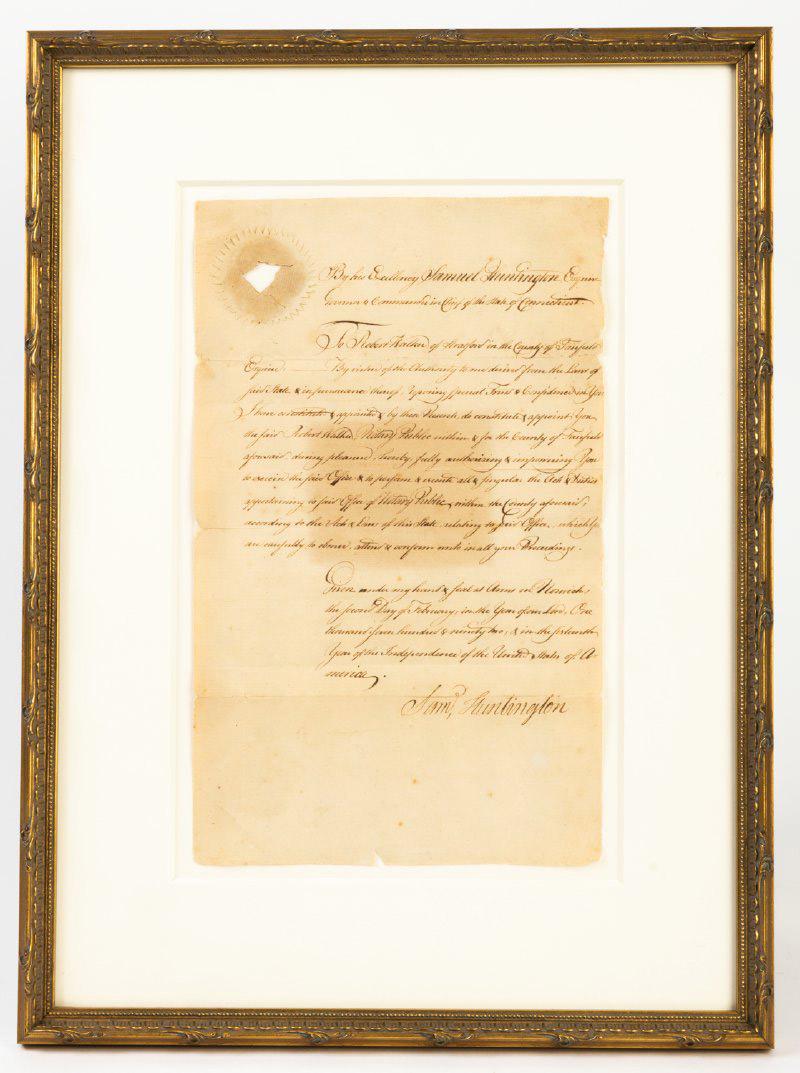 By his Excellency Samuel Huntington Esquire
Governor & Commander in Chief of the State of Connecticut.
To Robert Walker of Stratford in the County of Fairfield
Esquire By virtue of the Authority to me derived from the Laws of
said State & in pursuance thereof, Reposing special Trust & Confidence in You
I have constituted & appointed & by these Presents, do constitute & appoint You
the said Robert Walker, Notary Public within & for the County of Fairfield
aforesaid during pleasure, hereby fully authorizing & impowering You
to exercise the said Office & to perform & execute all & singular the Acts & Duties
appertaining to said Office of Notary Public, within the County aforesaid,
according to the Acts & Laws of this State, relating to said Office, which
are carefully to observe, attend & conform unto in all your Proceedings.
Given under my hand & seal at Arms in Norwich
the second Day of February, in the Year of our Lord, One
thousand seven hundred & ninety two, & in the sixteenth
Year of the Independence of the United States of A-
merica.
Sam,, Huntington